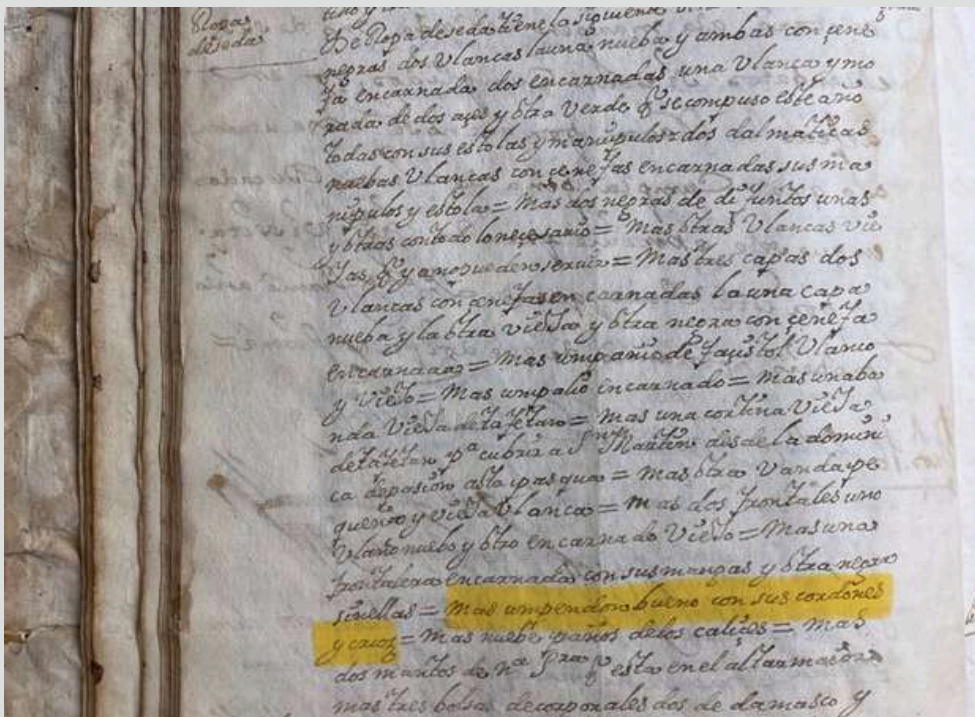 Ropas
de seda
De Ropa de seda tiene la siguiente
negras dos Vlancas la una nueba y ambas con çene
fa encarnada dos encarnadas una Vlanca y mo
rada de dos açes y otra Verde q se compuso este año
todas con sus estolas y manipulos = dos dalmaticas
nuebas Vlancas con çenefas encarnadas sus ma
nipulos y estola = Mas dos negras de difuntos unas
y otras con todo lo neçesario = Mas otras Vlancas vie
jas q ya no pueden servir = Mas tres capas dos
Vlancas con çenefas encarnadas la una capa
nueba y la otra vieja y otra negra con çenefa
encarnada = Mas um paño de Vlanco
y viejo = Mas um palio incarnado = Mas una ba
nda Vieja de tafetan = Mas una cortina Vieja
de tafetan pª cubrir a Sn Martin desde la domini
ca de pasion asta pasqua = Mas otra Vanda pe
queña y vieja Vlanca = Mas dos frontales uno
Vlanco nuebo y otro encarnado Viejo = Mas una
frontalera encarnada con sus mangas y otra negra
sin ellas = Mas um pendon bueno con sus cordones
y cruz = Mas nuebe paños de los caliçes = Mas
dos mantos de nª Sra q esta en el altar maior
mas tres bolsas de corporales dos de damasco y